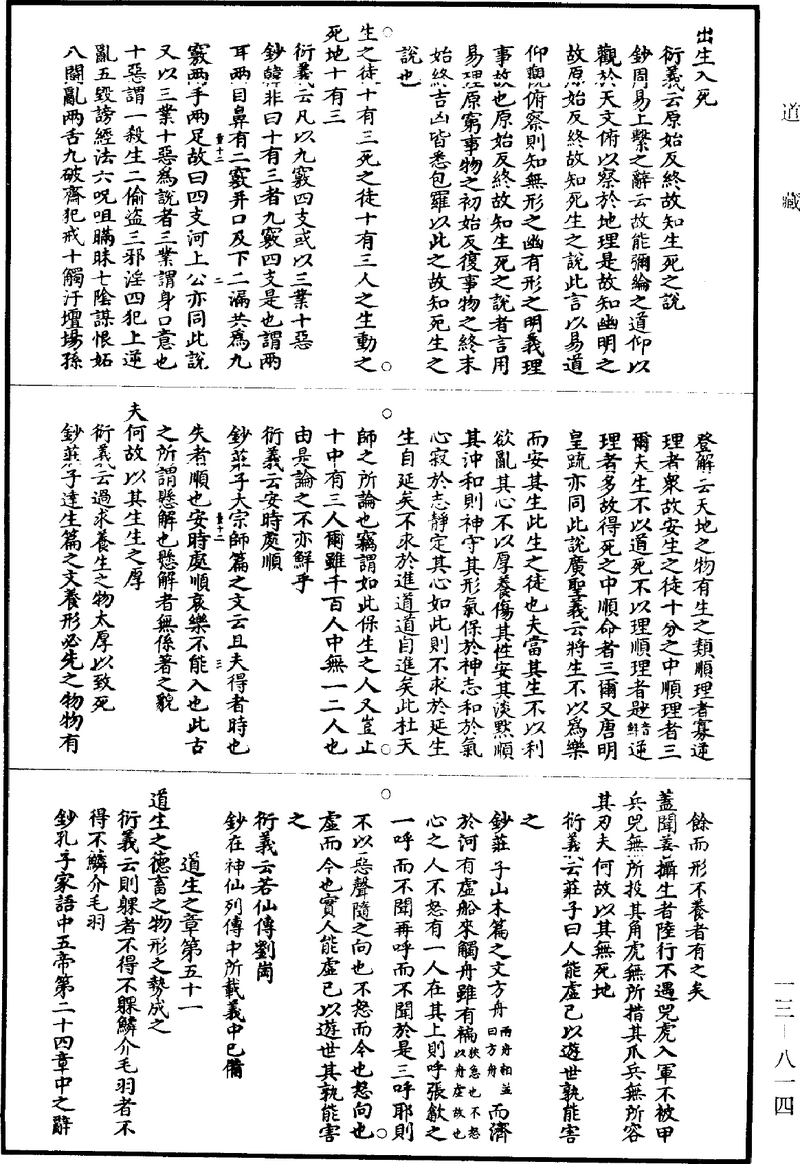 道藏
出生入死
衍義云原始反終故知生死之說
鈔周易上繫之辭云故能彌綸之道仰以
觀於天文俯以察於地理是故知幽明之
故原始反終故知死生之說此言以易道
仰觀俯察則知無形之幽有形之明義理
事故也原始反終故知生死之說者言用
易理原窮事物之初始反復事物之終末
始終吉凶皆悉包羅以此之故知死生之
說也
生之徒十有三死之徒十有三人之生動之
死地十有三
衍義云凡以九竅四支或以三業十惡
鈔韓非曰十有三者九竅四支是也謂兩
耳兩目鼻有二竅并口及下二漏共為九
竅兩手兩足故曰四支河上公亦同此說
又以三業十惡為說者三業謂身口意也
十惡謂一殺生二偷盜三邪淫四犯上逆
亂五毀謗經法六呪咀瞞昧七陰謀恨妬
八鬪亂兩舌九破齋犯戒十觸汙壇場孫
登解云天地之物有生之類順理者寡逆
理者衆故安生之徒十分之中順理者三
爾夫生不以道死不以理順理者尟音鮮逆
理者多故得死之中順命者三爾又唐明
皇疏亦同此說廣聖義云將生不以為樂
而安其生此生之徒也夫當其生不以利
欲亂其心不以厚養傷其性安其淡默順
其沖和則神守其形氣保於神志和於氣
心寂於志靜定其心如此則不求於延生
生自延矣不求於進道道自進矣此杜天
師之所論也竊謂如此保生之人又豈止
十中有三人爾雖千百人中無一二人也
由是論之不亦鮮乎
衍義云安時處順
鈔莊子大宗師篇之文云且夫得者時也
失者順也安時處順哀樂不能入也此古
之所謂懸解也懸解者無係著之貌
夫何故以其生生之厚
衍義云過求養生之物太厚以致死
鈔莊子達生篇之文養形必先之物物有
餘而形不養者有之矣
蓋聞善攝生者陸行不遇兕虎入軍不被甲
兵兕無所投其角虎無所措其爪兵無所容
其刃夫何故以其無死地
衍義云莊子曰人能虛己以遊世孰能害
之
鈔莊子山木篇之文方舟兩舟相並曰方舟而濟
於河有虛船來觸舟雖有褊狹急也不怒以舟虛故也
心之人不怒有一人在其上則呼張歙之
一呼而不聞再呼而不聞於是三呼耶則
不以惡聲隨之向也不怒而今也怒向也
虛而今也實人能虛己以遊世其孰能害
之
衍義云若仙傳劉崗
鈔在神仙列傳中所載義中已備
道生之章第五十一
道生之德畜之物形之勢成之
衍義云則躶者不得不躶鱗介毛羽者不
得不鱗介毛羽
鈔孔子家語中五帝第二十四章中之辭
一三—八一四